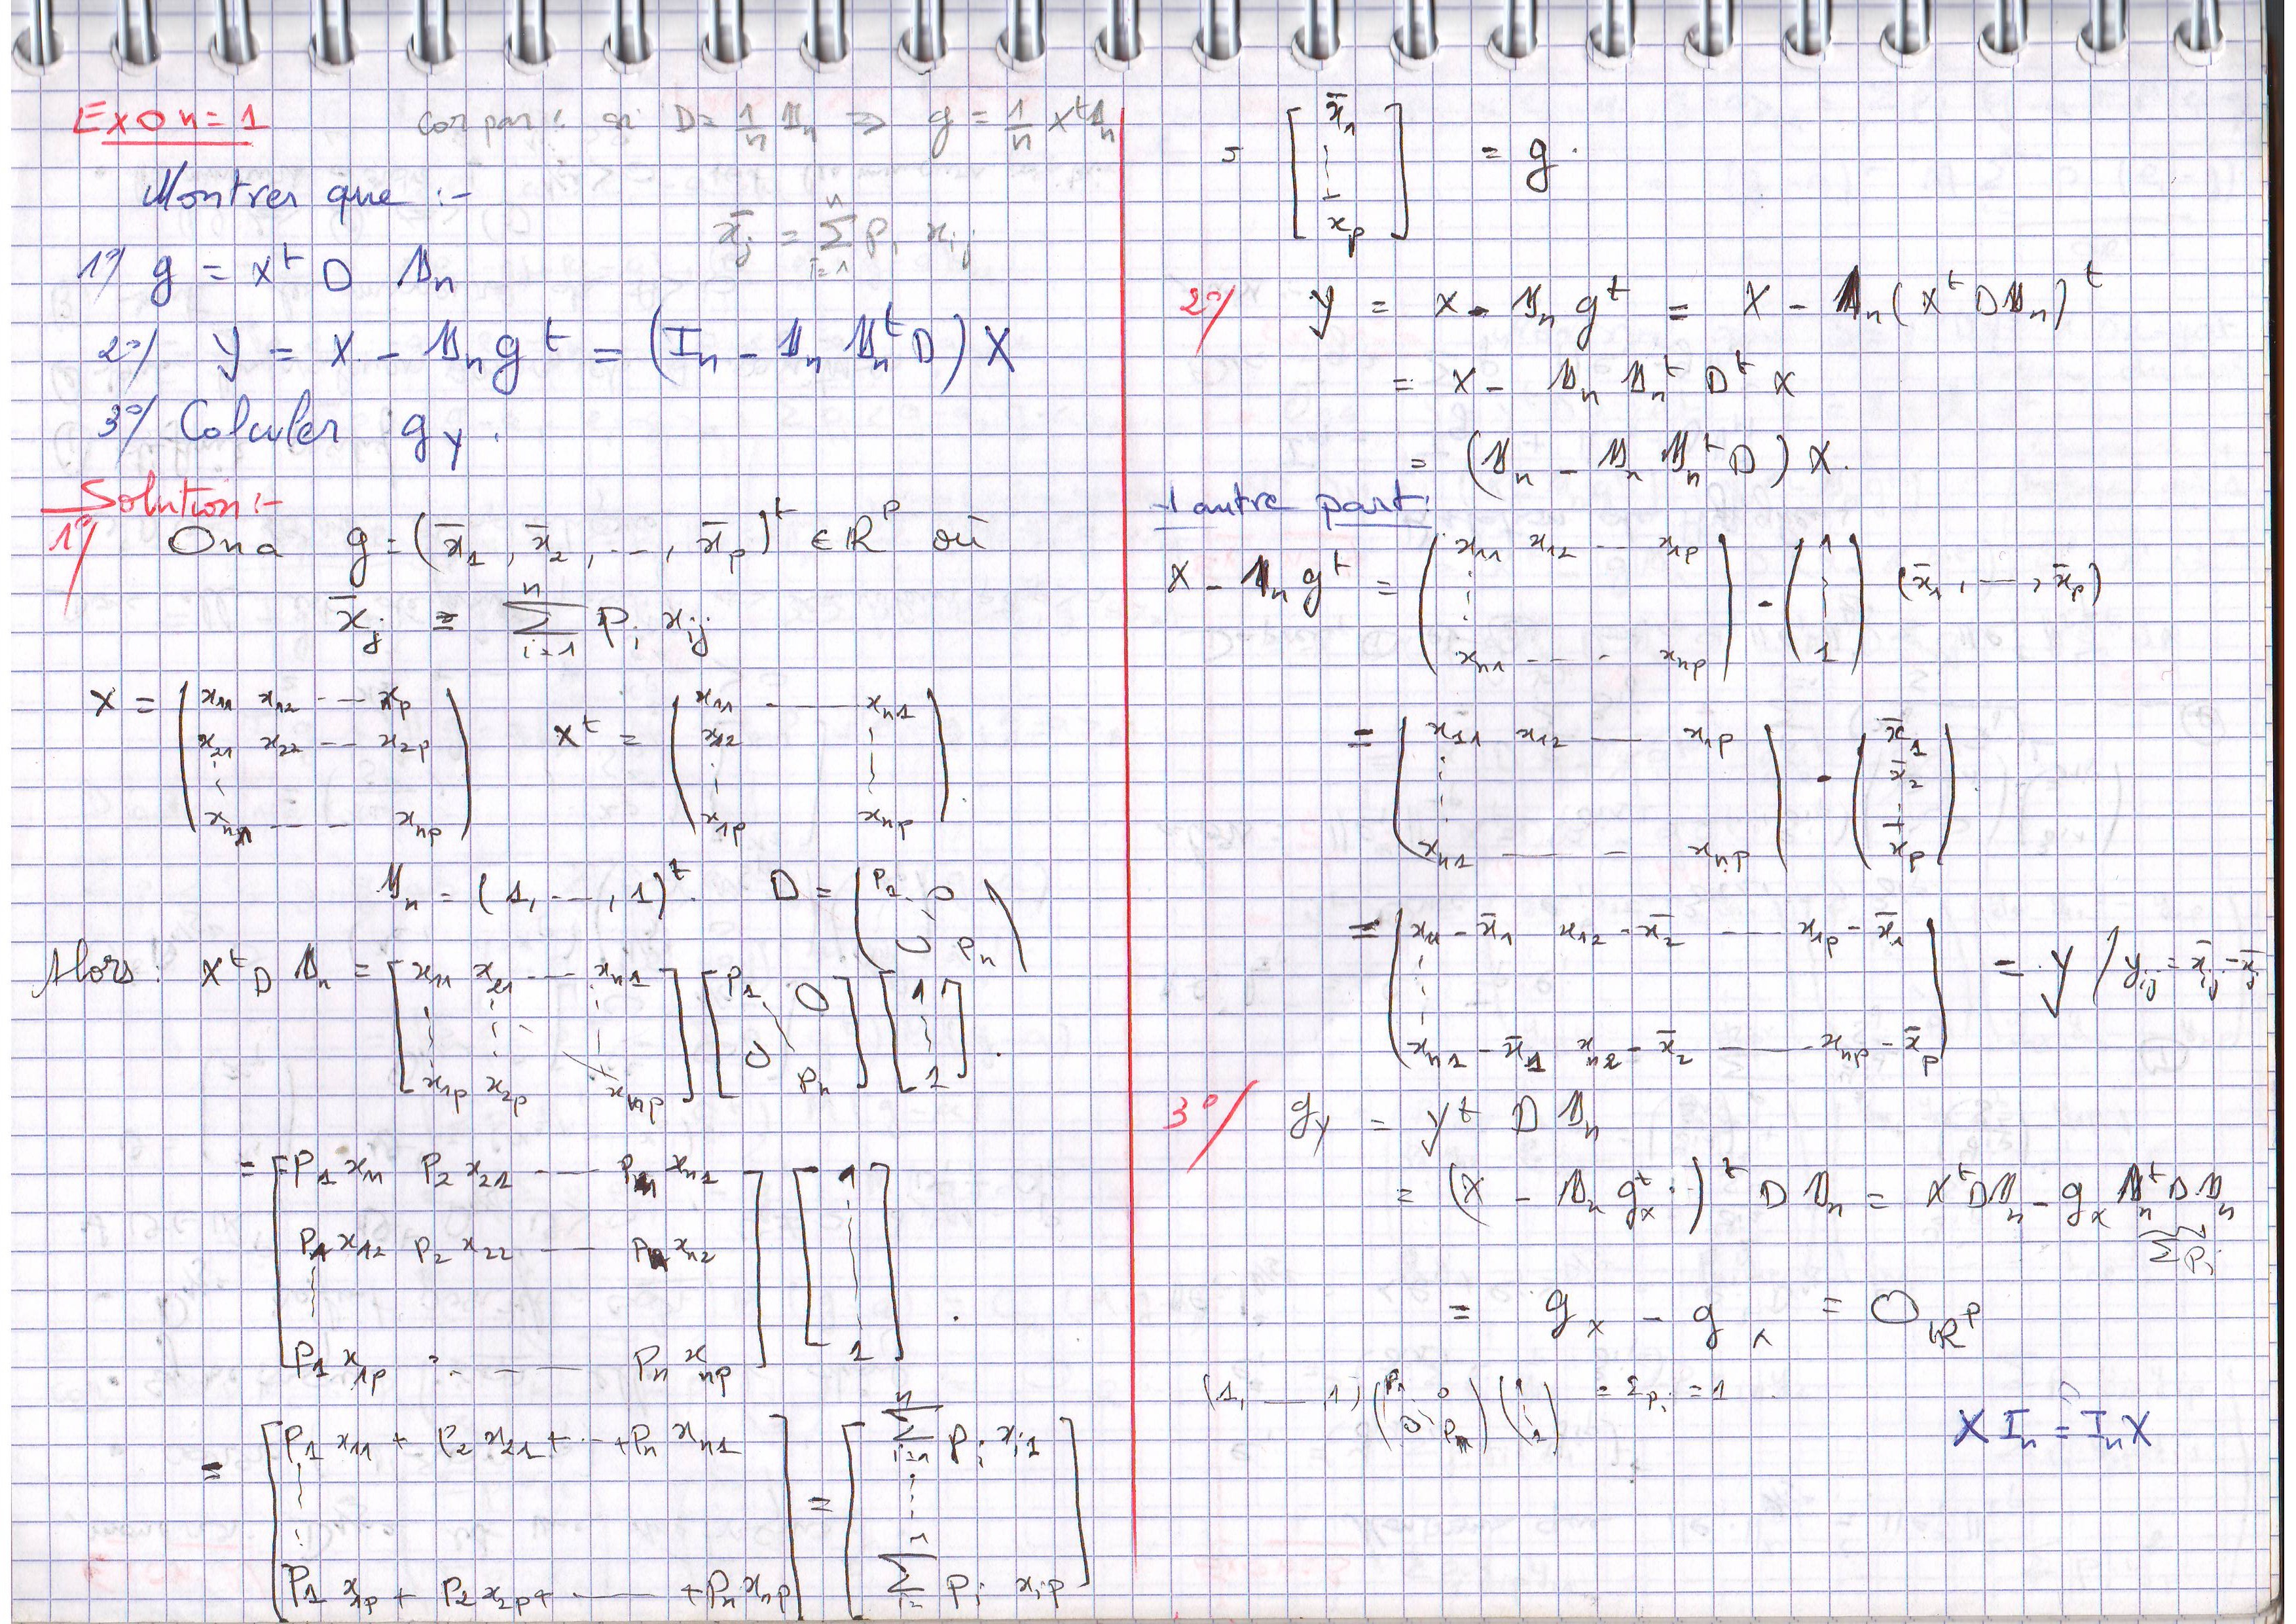 Exo n=1
cor par: si D = 1/n 𝟙n ⇒ g = 1/n X^t 𝟙n
Montrer que :-
x̄j = Σ_{i=1}^{n} Pi xij
1°/ g = X^t D 𝟙n
2°/ Y = X - 𝟙n g^t = (In - 𝟙n 𝟙n^t D) X
3°/ Calculer gY.
Solution:-
1°/ On a g = (x̄1, x̄2, ..., x̄p)^t ∈ R^P où
x̄j = Σ_{i=1}^{n} Pi xij
X = (x11 x12 --- xp
x21 x22 --- x2p
⋮
xn1 --- xnp) X^t = (x11 --- xn1
x12 ⋮
⋮
x1p xnp).
𝟙n = (1, ---, 1)^t. D = (P1 0
0 Pn)
Alors: X^t D 𝟙n = [x11 x21 --- xn1
⋮ ⋮ ⋮
x1p x2p xnp] [P1 0
0 Pn] [1
⋮
1].
= [P1 x11 P2 x21 --- Pn xn1
P1 x12 P2 x22 --- Pn xn2
⋮
P1 x1p --- Pn xnp] [1
⋮
1].
= [P1 x11 + P2 x21 + ... + Pn xn1
⋮
P1 xp + P2 x2p + --- + Pn xnp] = [Σ_{i=n}^{n} Pi xi1
⋮
Σ_{i=}^{n} Pi xip]
= [x̄1
⋮
x̄p] = g.
2°/ Y = X - 𝟙n g^t = X - 𝟙n (X^t D 𝟙n)^t
= X - 𝟙n 𝟙n^t D^t X
= (𝟙n - 𝟙n 𝟙n^t D) X.
autre part:
X - 𝟙n g^t = (x11 x12 --- x1p
⋮
xn1 --- xnp) - (1
⋮
1) (x̄1, ---, x̄p)
= (x11 x12 --- x1p
⋮
xn1 --- xnp) - (x̄1
x̄2
⋮
x̄p).
= (x11 - x̄1 x12 - x̄2 --- x1p - x̄1
⋮
xn1 - x̄1 xn2 - x̄2 --- xnp - x̄p) = Y / yij = x̄ij - x̄j
3°/ gY = Y^t D 𝟙n
= (X - 𝟙n gx^t)^t D 𝟙n = X^t D 𝟙n - gx 𝟙n^t D 𝟙n
Σ Pi
= gx - gx = 0_{IR^P}
(1, --- 1) (P1 0
0 Pn) (1
⋮
1) = Σ Pi = 1
X In = In X